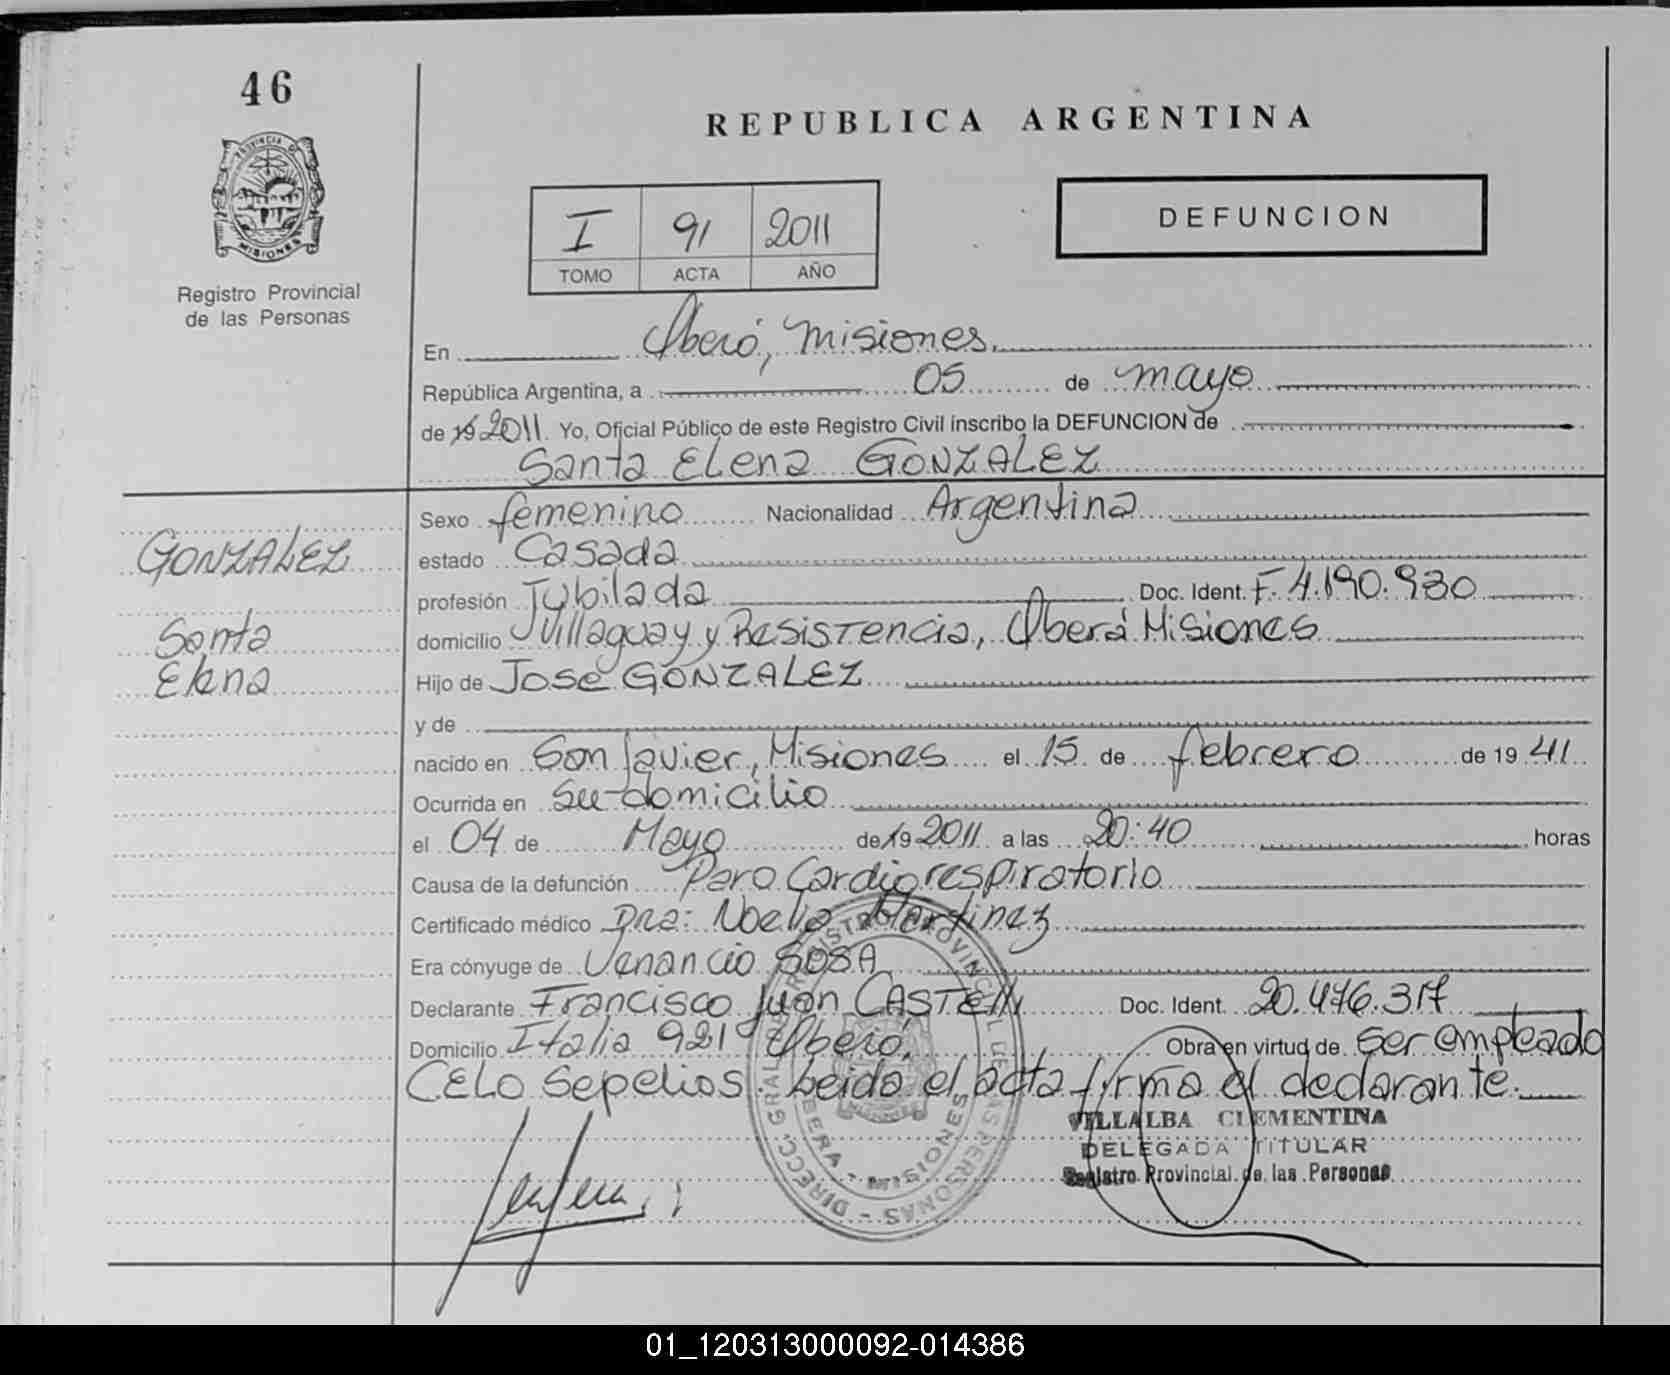 46
PROVINCIA DE
MISIONES
Registro Provincial
de las Personas
REPUBLICA ARGENTINA
I 91 2011
TOMO ACTA AÑO
DEFUNCION
En Oberá, Misiones.
República Argentina, a 05 de mayo
de 19 2011. Yo, Oficial Público de este Registro Civil inscribo la DEFUNCION de
Santa Elena GONZALEZ
GONZALEZ
Santa
Elena
Sexo femenino Nacionalidad Argentina
estado Casada
profesión Jubilada Doc. Ident. F. 4.190.930
domicilio Villaguay y Resistencia, Oberá Misiones
Hijo de José GONZALEZ
y de
nacido en San Javier, Misiones el 15 de febrero de 19 41
Ocurrida en Su domicilio
el 04 de Mayo de 19 2011 a las 20:40 horas
Causa de la defunción Paro Cardiorespiratorio
Certificado médico Dra: Noelia Martinez
Era cónyuge de Venancio SOSA
Declarante Francisco Juan CASTELLI Doc. Ident. 20.476.317
Domicilio Italia 921 Oberá. Obra en virtud de ser empleado
CELO Sepelios. Leida el acta firma el declarante.
DIRECC. GRAL. DE REGISTRO PROVINCIAL DE LAS PERSONAS
OBERA - MISIONES
VILLALBA CLEMENTINA
DELEGADA TITULAR
Registro Provincial de las Personas
01_120313000092-014386